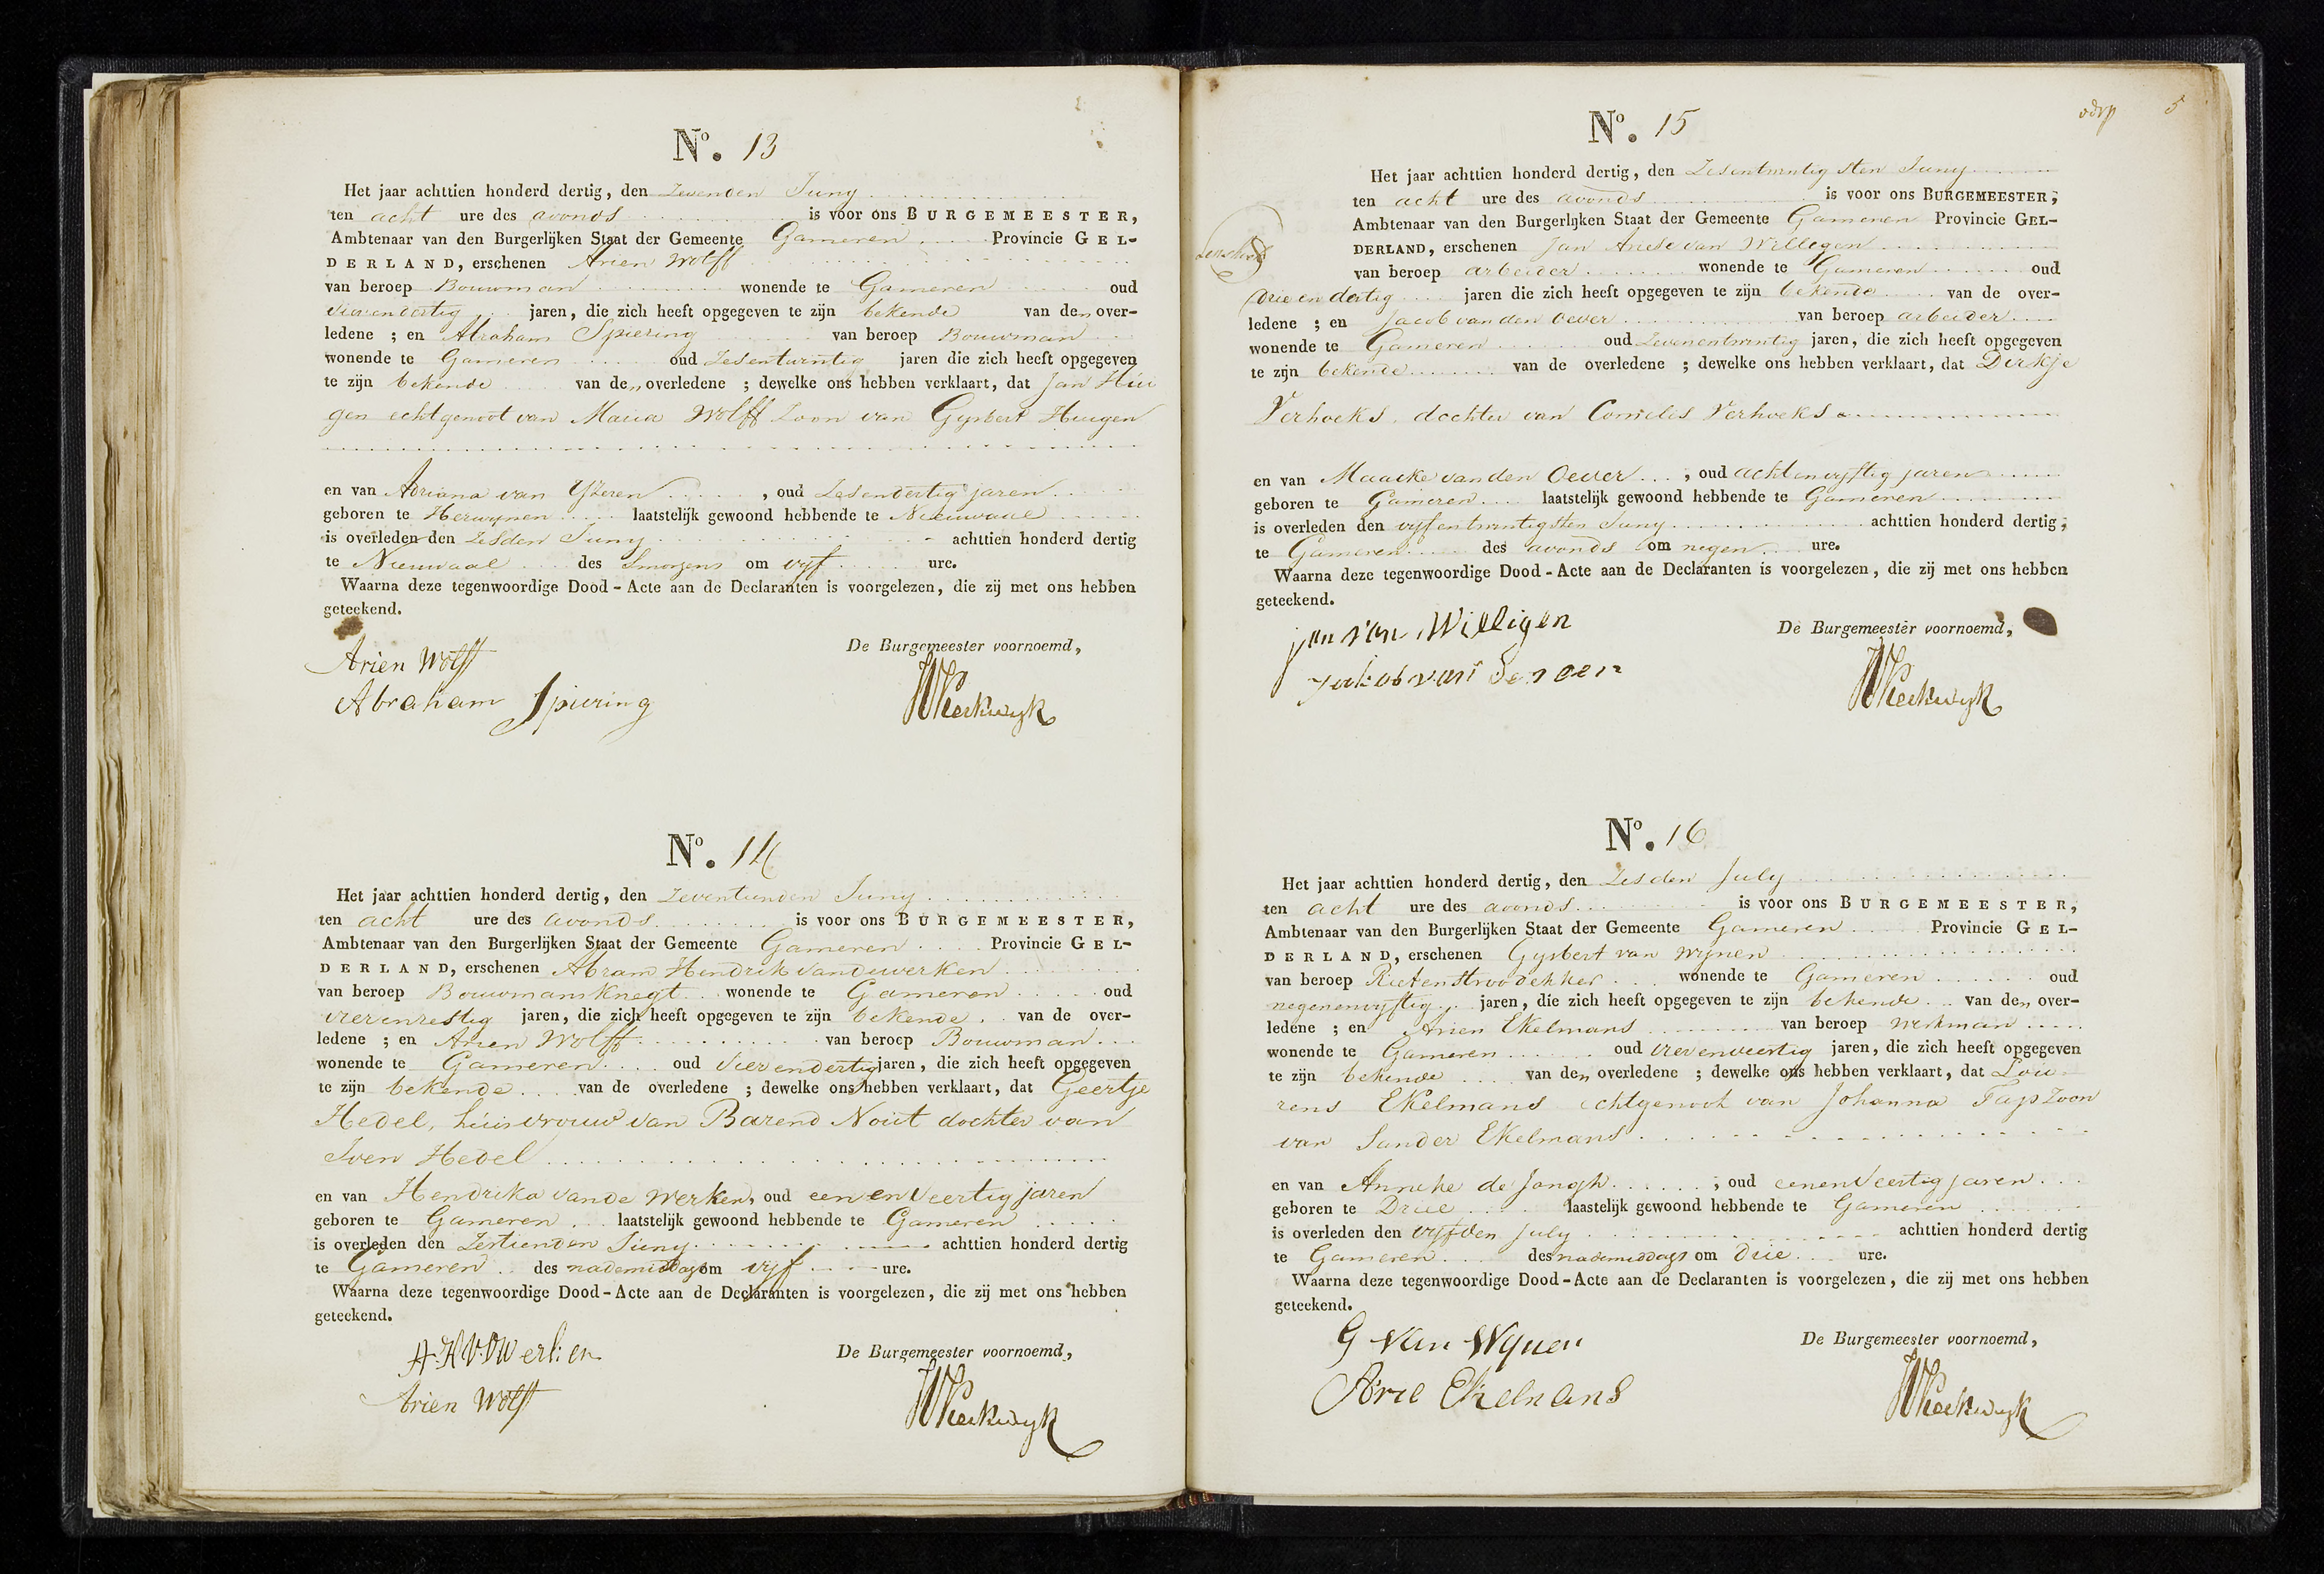 No. 13
Het jaar achttien honderd dertig, den Zevenden Juny
ten acht ure des avonds is voor ons BURGEMEESTER,
Ambtenaar van den Burgerlijken Staat der Gemeente Gameren Provincie GEL-
DERLAND, erschenen Arien Wolff
van beroep Bouwman wonende te Gameren oud
vierendertig jaren, die zich heeft opgegeven te zijn bekende van den over-
ledene ; en Abraham Spiering van beroep Bouwman
wonende te Gameren oud Zesentwintig jaren die zich heeft opgegeven
te zijn bekende van den overledene ; dewelke ons hebben verklaart, dat Jan Hui
gen echtgenoot van Maria Wolff Zoon van Gysbert Huigen
en van Adriana van Yzeren , oud Zesendertig jaren
geboren te Herwynen laatstelijk gewoond hebbende te Nieuwaal
is overleden den Zesden Juny achttien honderd dertig
te Nieuwaal des Smorgens om vyf ure.
Waarna deze tegenwoordige Dood-Acte aan de Declaranten is voorgelezen, die zij met ons hebben
geteekend.
De Burgemeester voornoemd,
Arien Wolff
Abraham Spiering
Kerkwyk
No. 14
Het jaar achttien honderd dertig, den Zeventienden Juny
ten acht ure des avonds is voor ons BURGEMEESTER,
Ambtenaar van den Burgerlijken Staat der Gemeente Gameren Provincie GEL-
DERLAND, erschenen Abram Hendrik vandewerken
van beroep Bouwmansknegt wonende te Gameren oud
vierenzestig jaren, die zich heeft opgegeven te zijn bekende van de over-
ledene ; en Arien Wolff van beroep Bouwman
wonende te Gameren oud vierendertig jaren, die zich heeft opgegeven
te zijn bekende van de overledene ; dewelke ons hebben verklaart, dat Geertje
Hedel, huisvrouw van Barend Nout dochter van
Iven Hedel
en van Hendrika vande Werken, oud eenenveertig jaren
geboren te Gameren laatstelijk gewoond hebbende te Gameren
is overleden den Zestienden Juny achttien honderd dertig
te Gameren des nademiddags om vyf ure.
Waarna deze tegenwoordige Dood-Acte aan de Declaranten is voorgelezen, die zij met ons hebben
geteekend.
A.H.V.D Werken
De Burgemeester voornoemd,
Arien Wolff
Kerkwyk
5
No. 15
Het jaar achttien honderd dertig, den Zesentwintigsten Juny
ten acht ure des avonds is voor ons BURGEMEESTER,
Ambtenaar van den Burgerlijken Staat der Gemeente Gameren Provincie GEL-
DERLAND, erschenen Jan Ariese van Willegen
van beroep arbeider wonende te Gameren oud
drie en dertig jaren die zich heeft opgegeven te zijn bekende van de over-
ledene ; en Jacob van den Oever van beroep arbeider
wonende te Gameren oud Zevenentwintig jaren, die zich heeft opgegeven
te zijn bekende van de overledene ; dewelke ons hebben verklaart, dat Dirkje
Verhoeks, dochter van Cornelis Verhoeks
en van Maaike van den Oever , oud achtenvyftig jaren
geboren te Gameren laatstelijk gewoond hebbende te Gameren
is overleden den vyfentwintigsten Juny achttien honderd dertig,
te Gameren des avonds om negen ure.
Waarna deze tegenwoordige Dood-Acte aan de Declaranten is voorgelezen, die zij met ons hebben
geteekend.
jan van Willigen
De Burgemeester voornoemd,
Kerkwyk
No. 16
Het jaar achttien honderd dertig, den Zesden July
ten acht ure des avonds is voor ons BURGEMEESTER,
Ambtenaar van den Burgerlijken Staat der Gemeente Gameren Provincie GEL-
DERLAND, erschenen Gysbert van Wynen
van beroep Rietenstroodekker wonende te Gameren oud
negenenvyftig jaren, die zich heeft opgegeven te zijn bekende van den over-
ledene ; en Arien Ekelmans van beroep werkman
wonende te Gameren oud vierenveertig jaren, die zich heeft opgegeven
te zijn bekende van den overledene ; dewelke ons hebben verklaart, dat Lou
rens Ekelmans echtgenoot van Johanna Tap Zoon
van Sander Ekelmans
en van Anneke de Jongh , oud eenenveertig jaren
geboren te Driel laastelijk gewoond hebbende te Gameren
is overleden den vyfden July achttien honderd dertig
te Gameren des nademiddags om drie ure.
Waarna deze tegenwoordige Dood-Acte aan de Declaranten is voorgelezen, die zij met ons hebben
geteekend.
G van Wynen
De Burgemeester voornoemd,
Arie Ekelmans
Kerkwyk